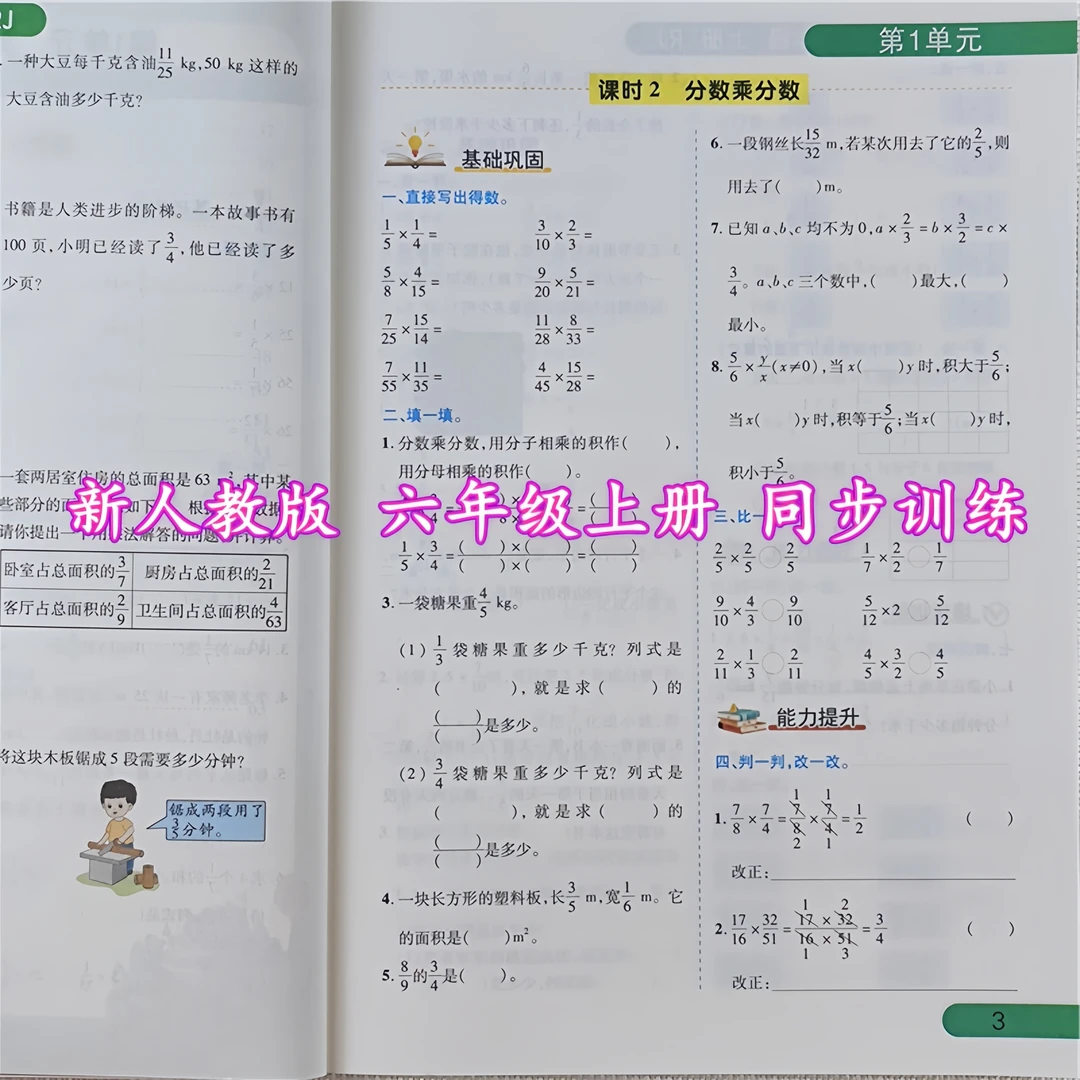 RJ
一种大豆每千克含油11/25 kg,50 kg 这样的
大豆含油多少千克?
书籍是人类进步的阶梯。一本故事书有
100 页,小明已经读了3/4,他已经读了多
少页?
一套两居室住房的总面积是 63
请你提出一个用乘法解答的问题并计算。
卧室占总面积的3/7 厨房占总面积的2/21
客厅占总面积的2/9 卫生间占总面积的4/63
将这块木板锯成 5 段需要多少分钟?
锯成两段用了
3/5分钟。
第1单元
课时 2 分数乘分数
基础巩固
一、直接写出得数。
1/5×1/4= 3/10×2/3=
5/8×4/15= 9/20×5/21=
7/25×15/14= 11/28×8/33=
7/55×11/35= 4/45×15/28=
二、填一填。
1. 分数乘分数,用分子相乘的积作( ),
用分母相乘的积作( )。
1/5×3/4=( )×( )/( )×( )=( )/( )
3. 一袋糖果重4/5 kg。
(1) 1/3 袋糖果重多少千克? 列式是
( ),就是求( )的
( )/( )是多少。
(2) 3/4 袋糖果重多少千克? 列式是
( ),就是求( )的
( )/( )是多少。
4. 一块长方形的塑料板,长3/5 m,宽1/6 m。它
的面积是( )m²。
5. 8/9的3/4是( )。
6. 一段钢丝长15/32 m,若某次用去了它的2/5,则
用去了( )m。
7. 已知 a、b、c 均不为 0,a×2/3=b×3/2=c×
3/4。a、b、c 三个数中,( )最大,( )
最小。
8. 5/6×y/x(x≠0),当 x( )y 时,积大于5/6;
当 x( )y 时,积等于5/6;当 x( )y 时,
积小于5/6。
新人教版 六年级上册 同步训练
三、比一
2/5×2/5○2/5 1/7×2/2○1/7
9/10×4/3○9/10 5/12×2○5/12
2/11×1/3○2/11 4/5×3/2○4/5
能力提升
四、判一判,改一改。
1. 7/8×7/4=7/8×7/4=1/2 ( )
1 1
2 1
改正:
2. 17/16×32/51=17×32/16×51=3/4 ( )
1 2
1 3
改正:
3